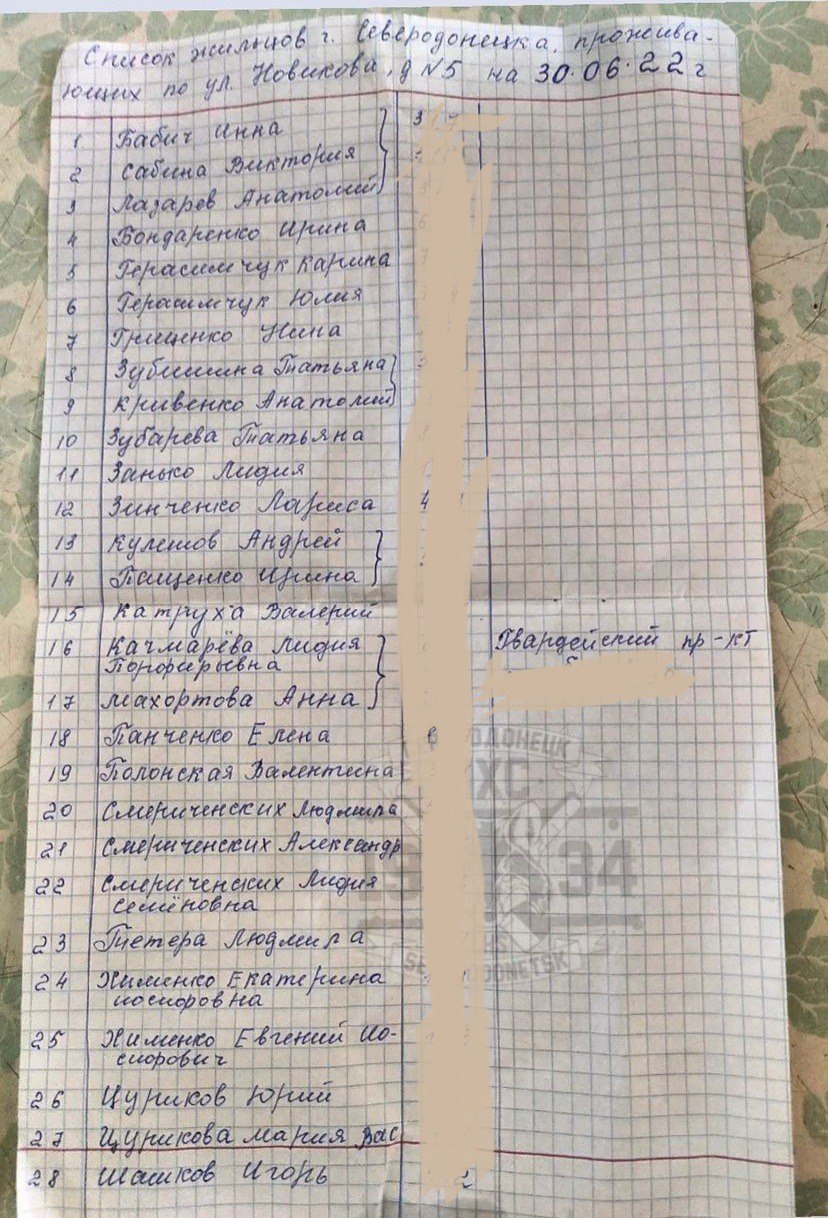 Список жильцов г. Северодонецка, прожива-
ющих по ул. Новикова, д N5 на 30.06.22 г
1 Бабич Инна 3
2 Сабина Виктория
3 Лазарев Анатолий
4 Бондаренко Ирина
5 Герасимчук Карина
6 Герасимчук Юлия
7 Гриценко Нина
8 Зубишина Татьяна
9 Кривенко Анатолий
10 Зубарева Татьяна
11 Занько Лидия
12 Зинченко Лариса 4
13 Кулешов Андрей
14 Пащенко Ирина
15 Катруха Валерий
16 Качмарёва Лидия Гвардейский пр-кт
Порфирьевна
17 Махортова Анна
18 Панченко Елена
19 Полонская Валентина
20 Смериченских Людмила
21 Смериченских Александр
22 Смериченских Лидия
Семёновна
23 Тетера Людмила
24 Хименко Екатерина
иосифовна
25 Хименко Евгений Ио-
сифович
26 Цуриков Юрий
27 Цурикова Мария Вас
28 Шашков Игорь 2
1934
SEVERODONETSK